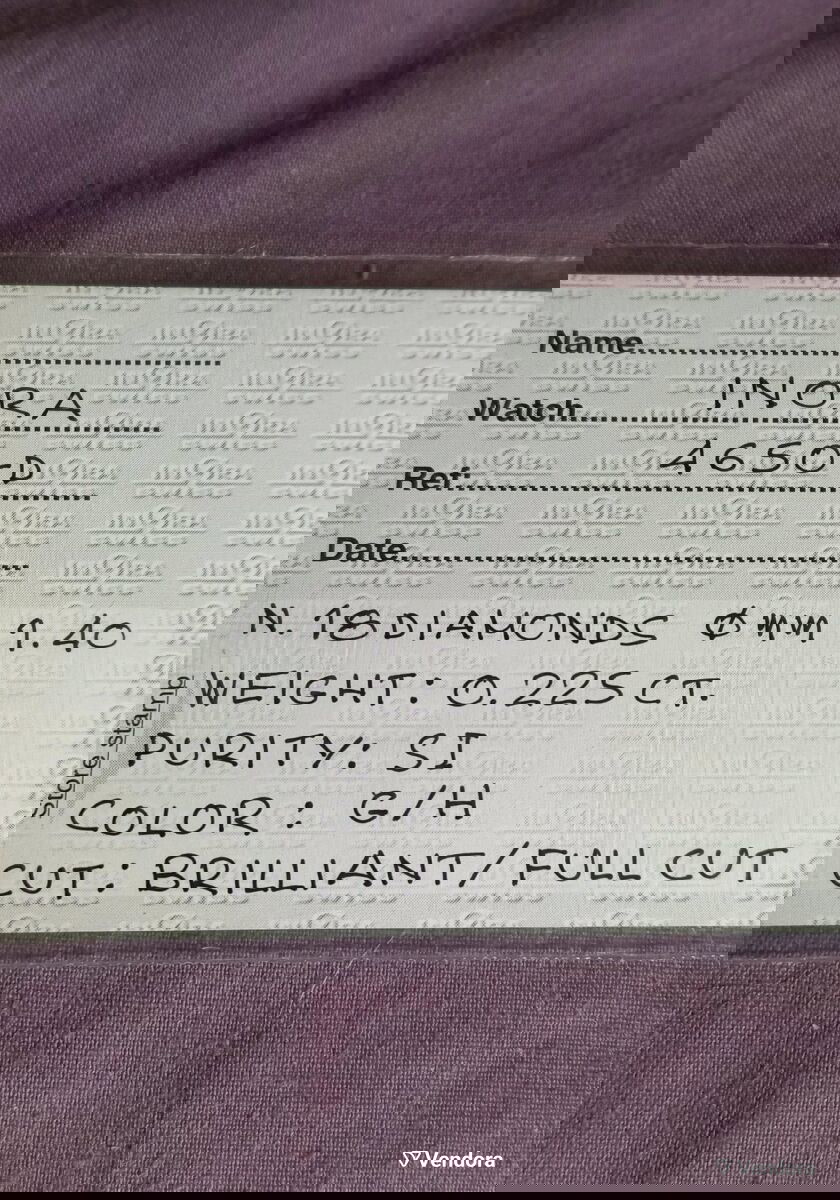 Name
Watch INORA
Ref: 4650
Date
N.18 DIAMONDS Ømm 1.40
WEIGHT: 0.225 CT.
PURITY: SI
COLOR: G/H
CUT: BRILLIANT/FULL CUT
Store stamp
Vendora